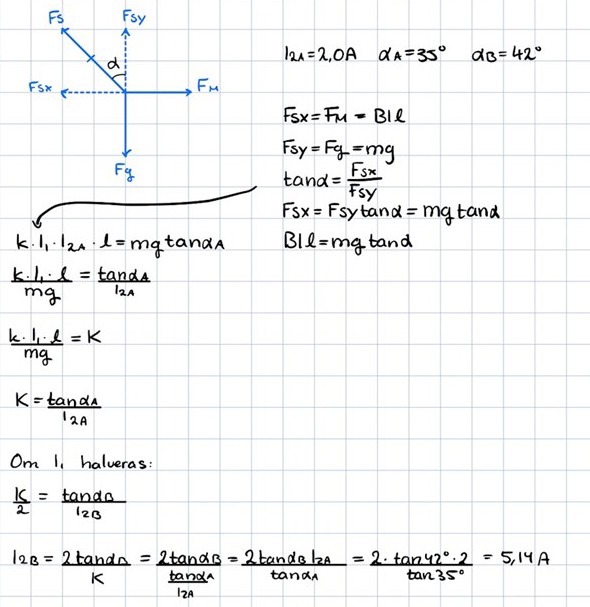 Fs Fsy
α
Fsx FM
Fg
I2A = 2,0A αA = 35° αB = 42°
Fsx = FM = BIl
Fsy = Fg = mg
tanα = Fsx/Fsy
Fsx = Fsy tanα = mg tanα
BIl = mg tanα
k · I₁ · I2A · l = mg tanαA
k · I₁ · l / mg = tanαA / I2A
k · I₁ · l / mg = K
K = tanαA / I2A
Om I₁ halveras:
K/2 = tanαB / I2B
I2B = 2 tanαB / K = 2 tanαB / (tanαA / I2A) = 2 tanαB I2A / tanαA = 2 · tan 42° · 2 / tan 35° = 5,14 A